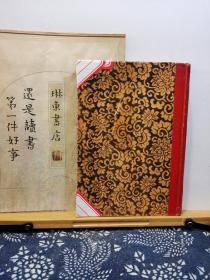 琳东书店
還是讀書
第一件好事